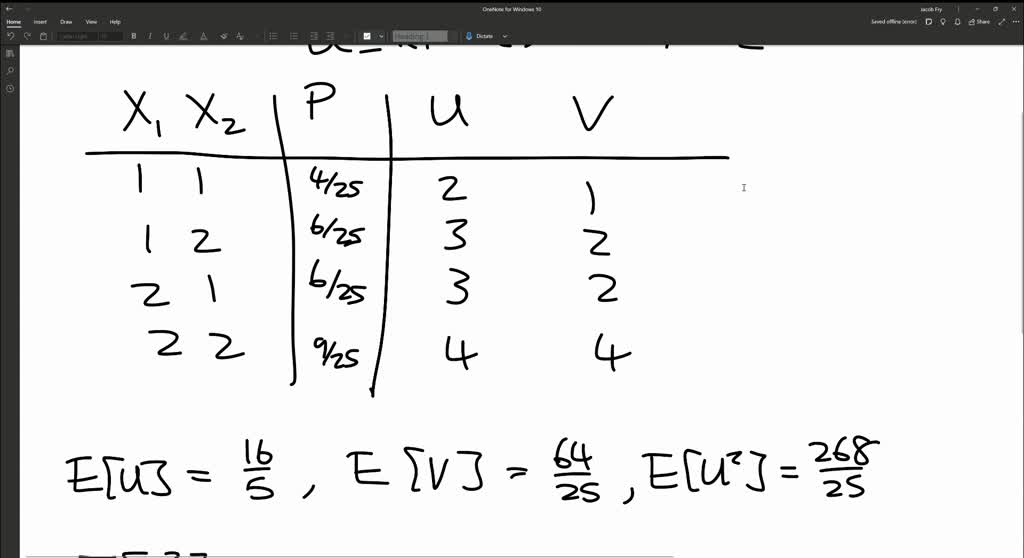 OneNote for Windows 10
Jacob Fry
Home Insert Draw View Help
Saved offline (error) Share
B I U Heading 1 Dictate
X₁ X₂ P U V
1 1 4/25 2 1
1 2 6/25 3 2
2 1 6/25 3 2
2 2 9/25 4 4
E[U] = 16/5 , E[V] = 64/25 , E[U²] = 268/25